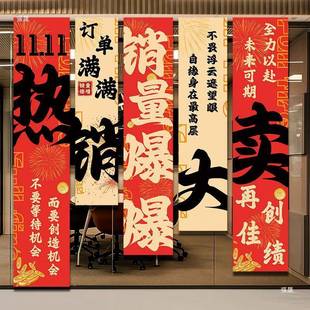 11.11
热
不要等待机会
而要创造机会
订单
满满
销
销量爆爆
不畏浮云遮望眼
自缘身在最高层
大
全力以赴
未来可期
卖
再创
佳绩